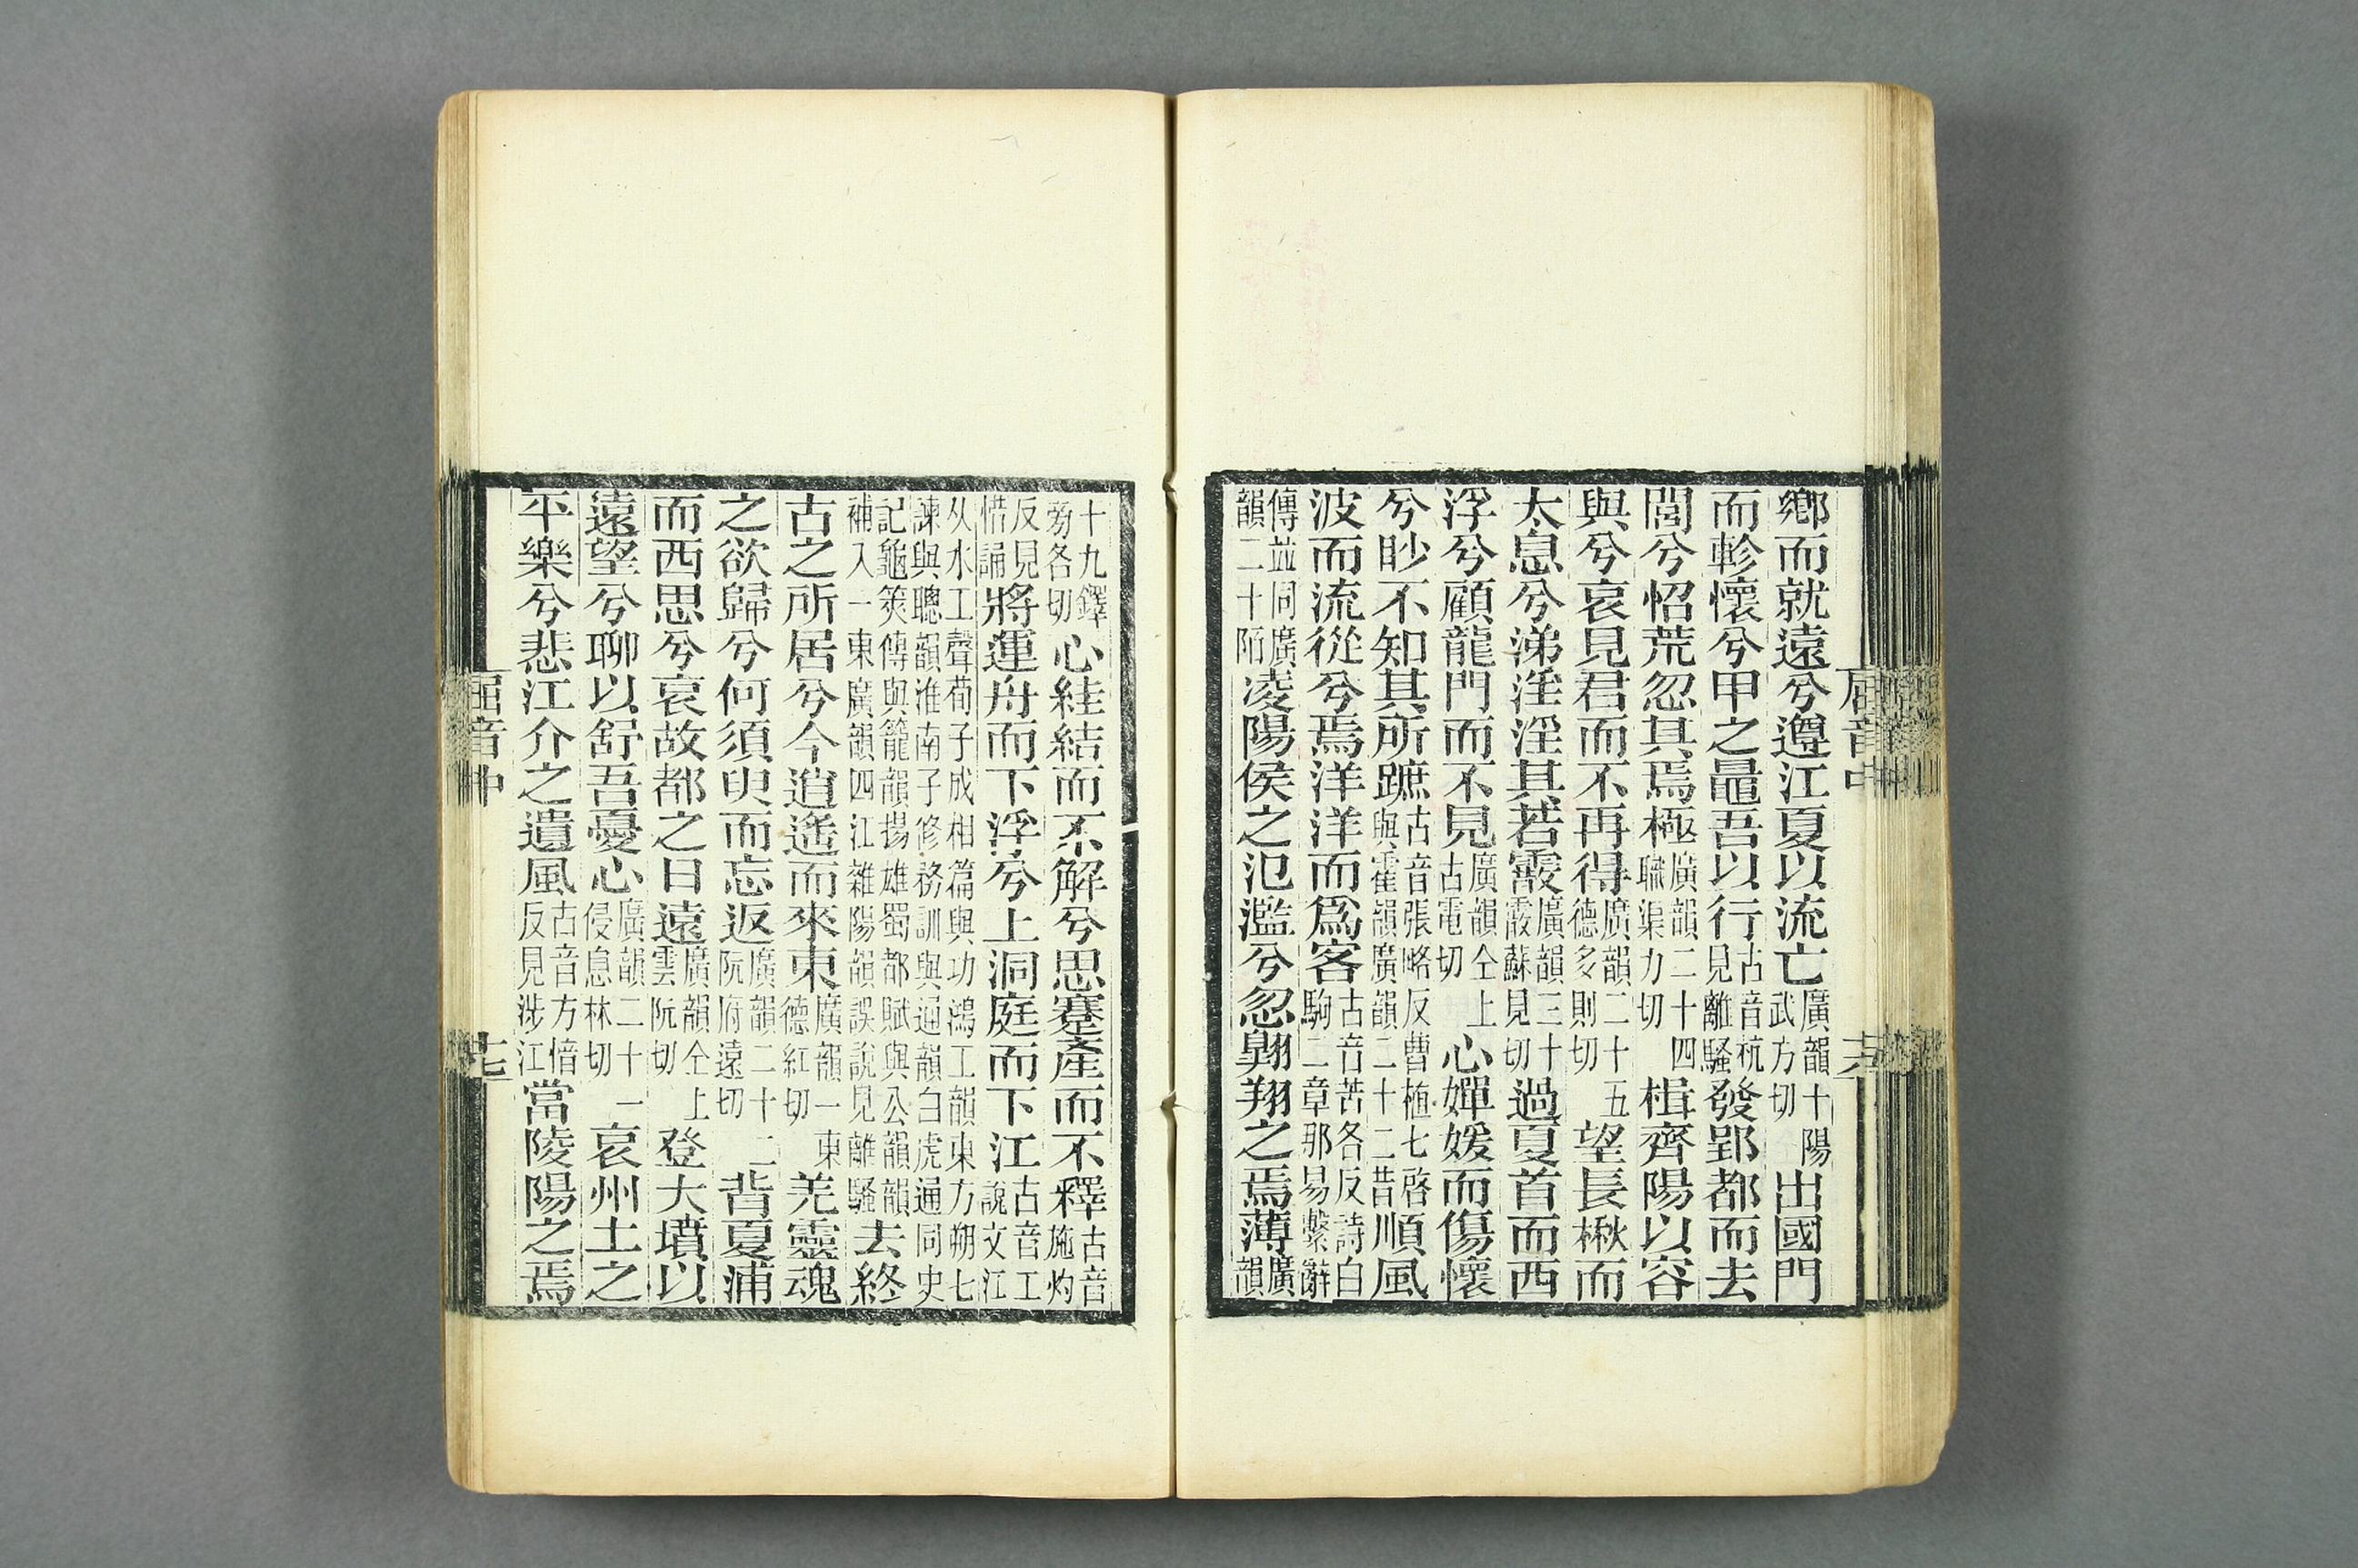 鄉而就遠兮遵江夏以流亡廣韻十陽武方切出國門
而軫懷兮甲之鼂吾以行古音杭見離騷發郢都而去
閭兮怊荒忽其焉極廣韻二十四職渠力切楫齊陽以容
與兮哀見君而不再得廣韻二十五德多則切望長楸而
太息兮涕淫淫其若霰廣韻三十霰蘇見切過夏首而西
浮兮顧龍門而不見廣韻仝上古電切心嬋媛而傷懷
兮眇不知其所蹠古音張略反曹植七啓與霍韻廣韻二十二昔順風
波而流從兮焉洋洋而爲客古音苦各反詩白駒二章那易繫辭
傳並同廣韻二十陌凌陽侯之氾濫兮忽翺翔之焉薄廣韻
屈音中
十六
十九鐸旁各切心絓結而不解兮思蹇產而不釋古音施灼
反見惜誦將運舟而下浮兮上洞庭而下江古音工說文江
从水工聲荀子成相篇與功鴻工韻東方朔七諫與聰韻淮南子修務訓與通韻白虎通同史
記龜筴傳與籠韻揚雄蜀都賦與公韻韻補入一東廣韻四江雜陽韻誤說見離騷去終
古之所居兮今逍遙而來東廣韻一東德紅切羌靈魂
之欲歸兮何須臾而忘返廣韻二十二阮府遠切背夏浦
而西思兮哀故都之日遠廣韻仝上雲阮切登大墳以
遠望兮聊以舒吾憂心廣韻二十一侵息林切哀州土之
平樂兮悲江介之遺風古音方愔反見涉江當陵陽之焉
屈音中
十七